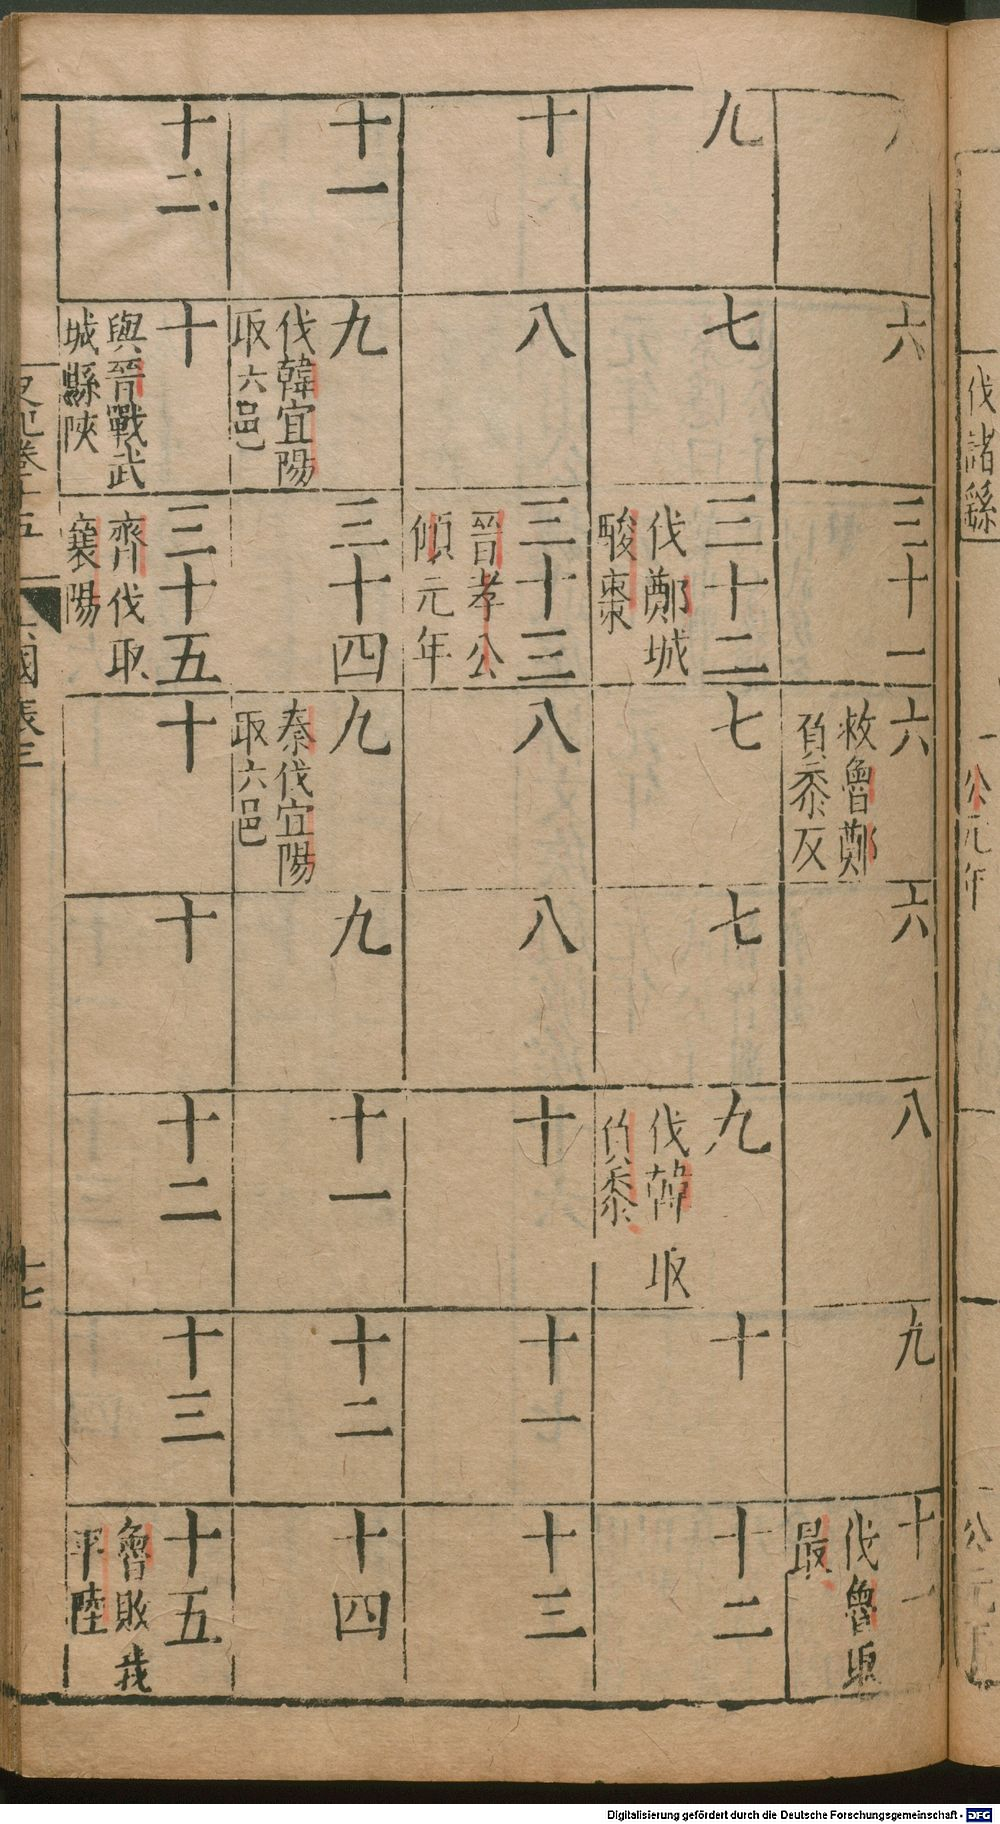 伐諸繇
公元年
六
三十一
六
救魯鄭
負黍反
六
八
九
十一
伐魯取
最
九
七
三十二
伐鄭城
駿棗
七
七
九
伐韓取
負黍
十
十二
十
八
三十三
晉孝公
傾元年
八
八
十
十一
十三
十一
九
伐韓宜陽
取六邑
三十四
九
秦伐宜陽
取六邑
九
十一
十二
十四
十二
十
與晉戰武
城縣陝
三十五
齊伐取
襄陽
十
十
十二
十三
十五
魯敗我
平陸
史記卷十五
六國表三
十七
Digitalisierung gefördert durch die Deutsche Forschungsgemeinschaft - DFG